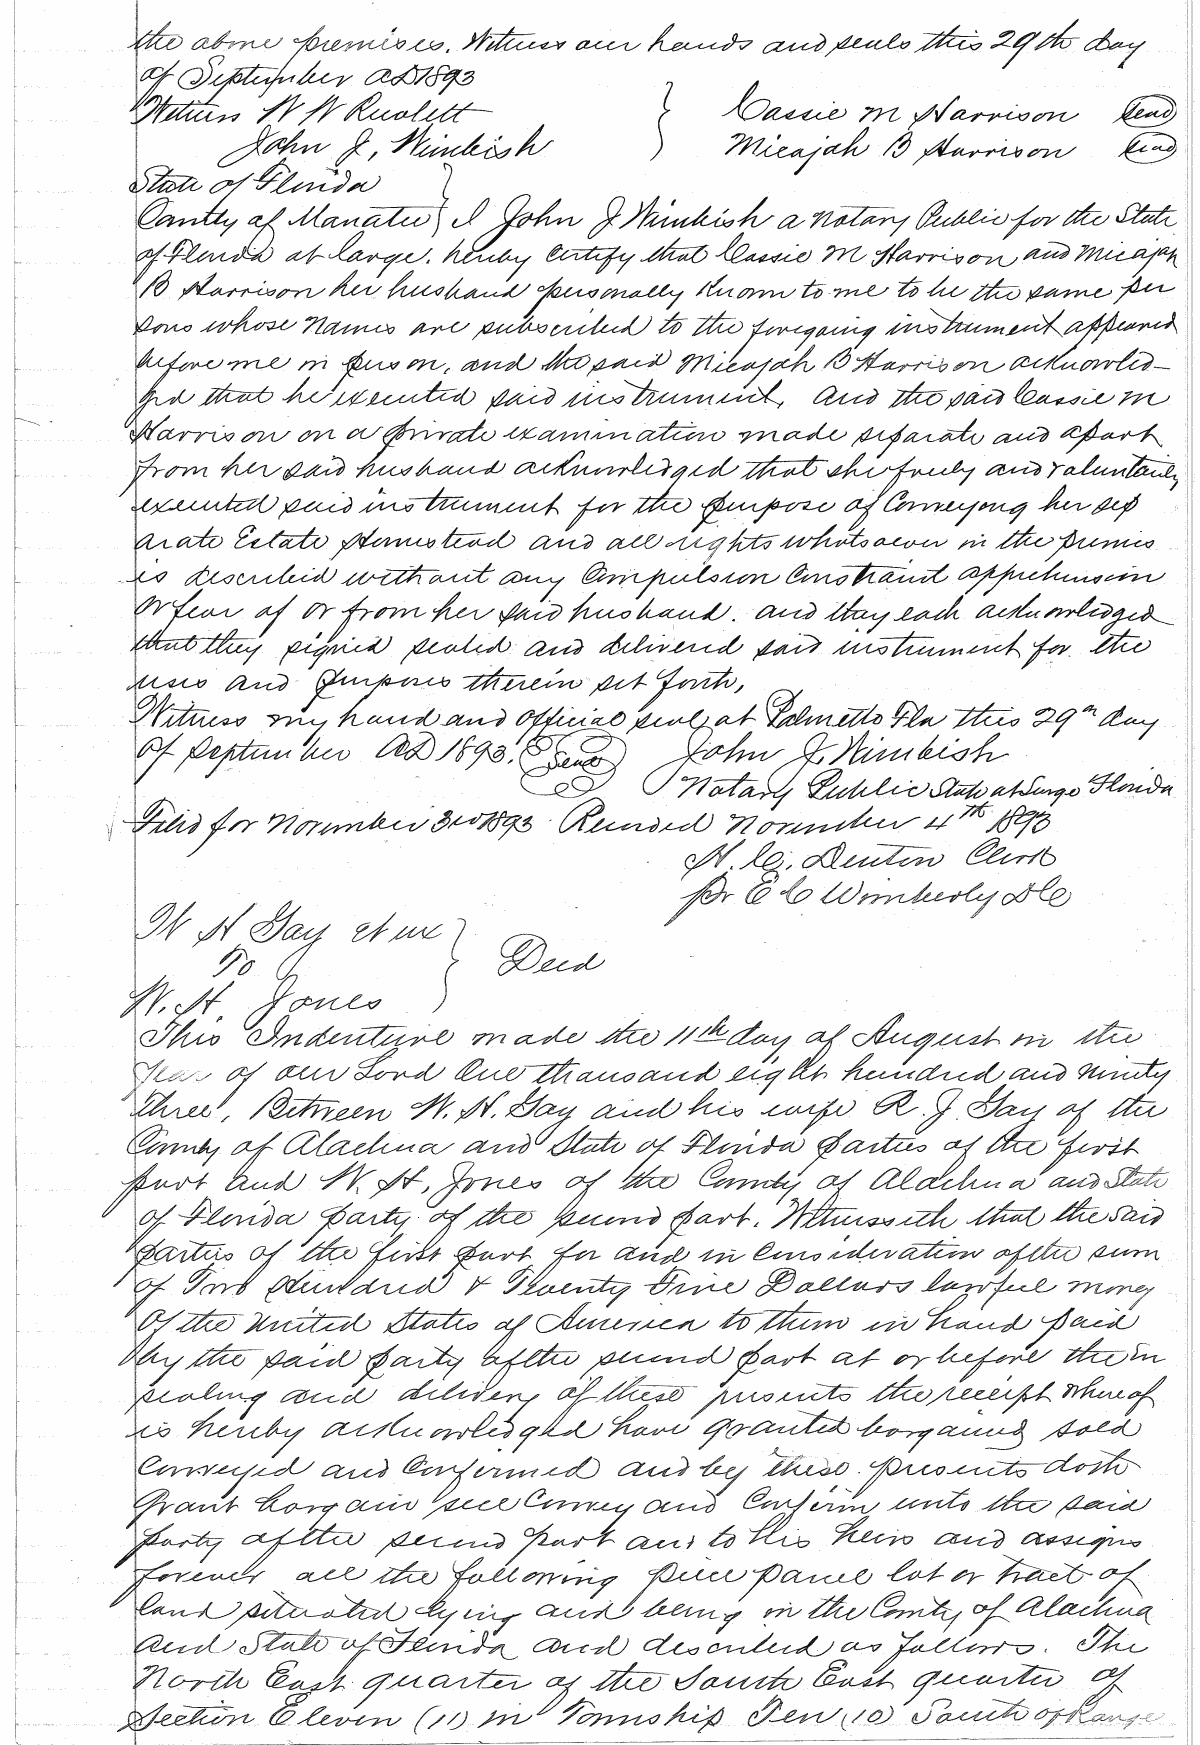 the above premises. Witness our hands and seals this 29th day
of September AD 1893
Witness W W Ruwlett } Cassie M Harrison Seal
John J, Wimbish Micajah B Harrison Seal
State of Florida
County of Manatee } I John J Wimbish a Notary Public for the State
of Florida at large. hereby certify that Cassie M Harrison and Micajah
B Harrison her husband personally known to me to be the same per
sons whose names are subscribed to the foregoing instrument appeared
before me in person, and the said Micajah B Harrison acknowled-
ged that he executed said instrument, And the said Cassie M
Harrison on a private examination made separate and apart
from her said husband acknowledged that she freely and voluntarily
executed said instrument for the purpose of Conveyong her sep
arate Estate Homestead and all rights whatsoever in the premis
es described without any Compulsion Constraint apprehension
or fear of or from her said husband. and they each acknowledged
that they signed sealed and delivered said instrument for the
uses and purposes therein set forth,
Witness my hand and official seal at Palmetto Fla this 29th day
of September AD 1893. Seal John J. Wimbish
Notary Public State at Large Florida
Filed for November 3rd 1893 Recorded November 4th 1893
H. C. Denton Clerk
pr E C Wimberly DC
W H Gay et ux
To } Deed
W. H. Jones
This Indenture made the 11th day of August in the
Year of our Lord One thousand eight hundred and ninety
three, Between W. H. Gay and his wife R. J. Gay of the
County of Alachua and State of Florida parties of the first
part and W. H, Jones of the County of Alachua and State
of Florida party of the second part. Witnesseth that the said
parties of the first part for and in Consideration of the sum
of Two Hundred & Twenty Five Dollars lawful money
Of the United States of America to them in hand paid
by the said party of the second part at or before the en
sealing and delivery of these presents the receipt whereof
is hereby acknowledged have granted bargained sold
Conveyed and Confirmed and by these presents doth
Grant bargain sell Convey and Confirm unto the said
party of the second part and to His heirs and assigns
forever all the following piece parcel lot or tract of
land situated lying and being in the County of Alachua
and State of Florida and described as follows. The
North East quarter of the South East quarter of
Section Eleven (11) in Township Ten (10) South of Range